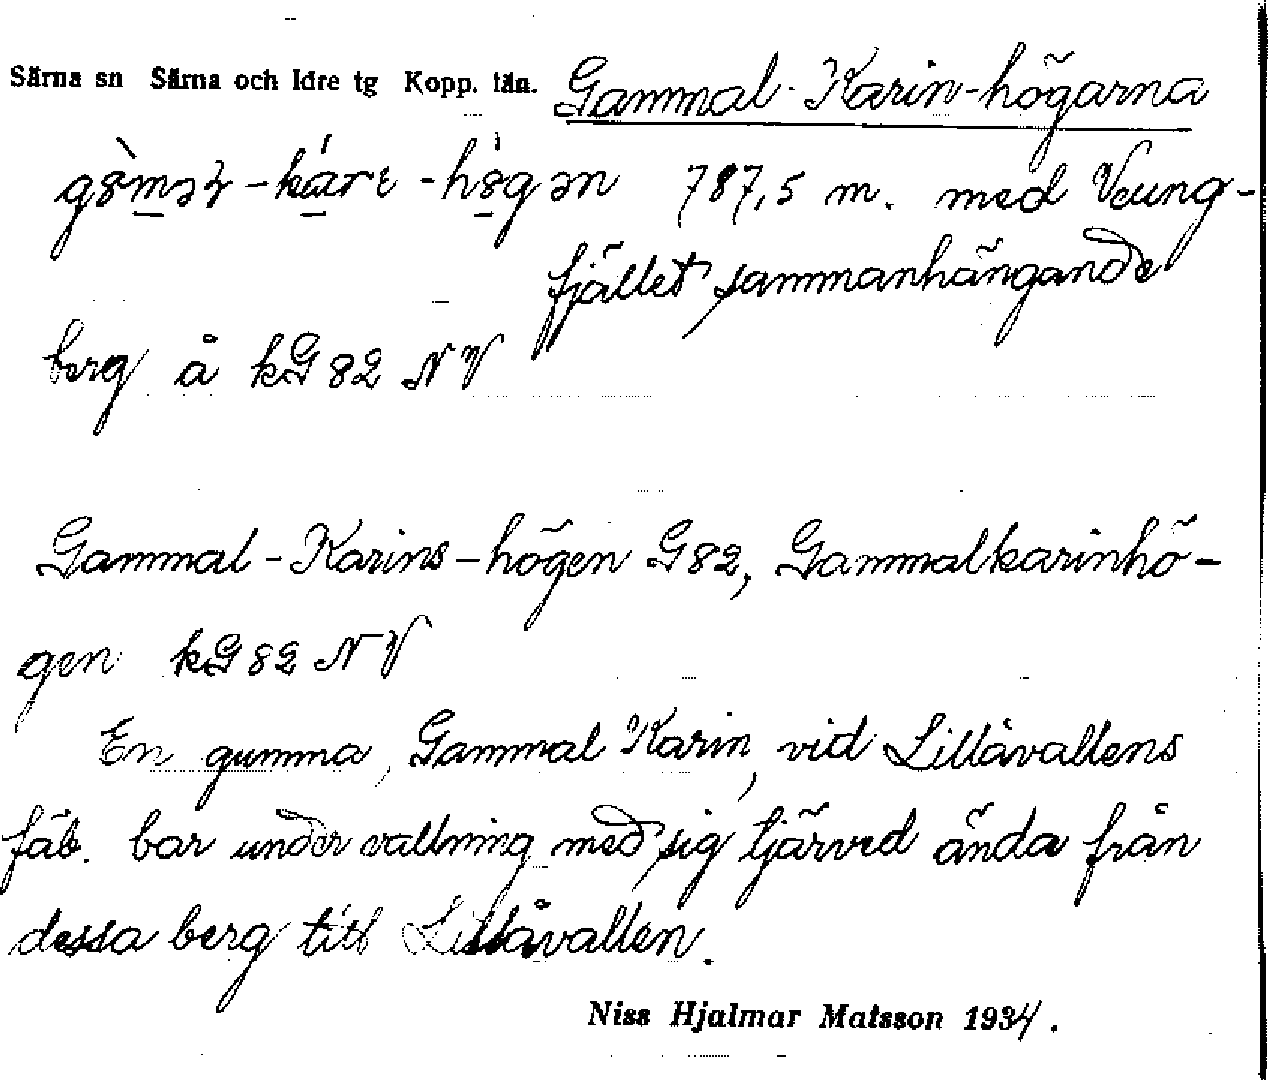 Särna sn Särna och Idre tg Kopp. län. Gammal-Karin-högarna
787,5 m. med Veung-
fjället sammanhängande
berg å kG 82 NV
Gammal-Karins-högen G82, Gammalkarinhö-
gen kG 82 NV
En gumma, Gammal Karin, vid Lillåvallens
fäb. bar under vallning med sig tjärved ända från
dessa berg till Lillåvallen.
Niss Hjalmar Matsson 1934.